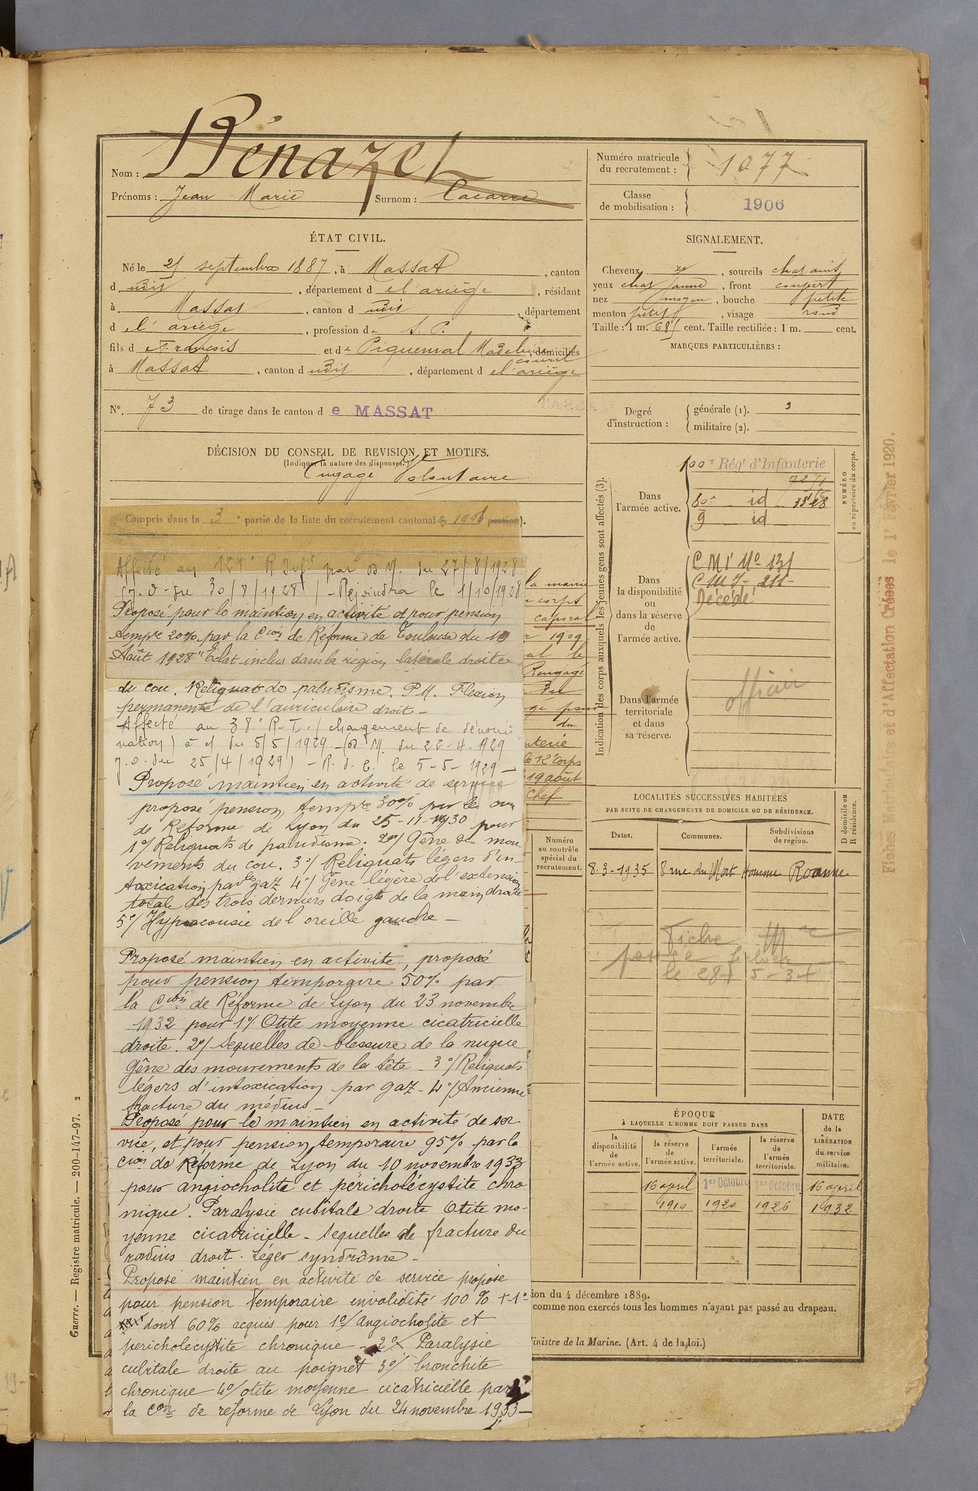 Nom : Bénazet
Prénoms : Jean Marie Surnom : Cacarre
Numéro matricule du recrutement : 1077
Classe de mobilisation : 1906
ÉTAT CIVIL.
Né le 21 septembre 1887, à Massat, canton
d udit, département d e l'ariège, résidant
à Massat, canton d udit, département
d e l'ariège, profession d S. P.
fils d e François et d e Piquemal Madeleine, domiciliés
à Massat, canton d udit, département d e l'ariège
N°. 73 de tirage dans le canton d e MASSAT
DÉCISION DU CONSEIL DE REVISION ET MOTIFS.
(Indiquer la nature des dispenses.)
Engagé Volontaire
Compris dans la 3e partie de la liste du recrutement cantonal (
Affecté au 121e R. Infie par D. M. du 27/8/1928
(J. O. du 30/8/1928) - Rejoindra le 1/10/1928
Proposé pour le maintien en activité et pour pension
tempre 20% par la Cion de Réforme de Toulouse du 19
Août 1928 "Eclat inclus dans la région latérale droite
du cou. Reliquats de paludisme. P.M. Flexion
permanente de l'auriculaire droit -
Affecté au 38e R. I. (changement de dénomi
nation) à c/ du 5/5/1929 - (D. M. du 22-4-1929
J. O. du 25/4/1929) - R. d. C. le 5-5-1929 -
Proposé maintien en activité de service
proposé pension tempre 30% par la con
de Réforme de Lyon du 25-11-1930 pour
1°/ Reliquats de paludisme. 2°/ Gêne des mou
vements du cou. 3°/ Reliquats légers d'in-
toxication par gaz 4°/ Gêne légère de l'extension
totale des trois derniers doigts de la main droite
5°/ Hypoacousie de l'oreille gauche -
Proposé maintien en activité, proposé
pour pension temporaire 50% par
la Cion de Réforme de Lyon du 23 novembre
1932 pour 1°/ Otite moyenne cicatricielle
droite. 2°/ Séquelles de blessure de la nuque
Gêne des mouvements de la tête - 3°/ Reliquats
légers d'intoxication par gaz - 4°/ Ancienne
fracture du médius -
Proposé pour le maintien en activité de ser
vice, et pour pension temporaire 95% par la
Cion de Réforme de Lyon du 10 novembre 1933
pour angiocholite et péricholécystite chro
nique. Paralysie cubitale droite Otite mo-
yenne cicatricielle - Séquelles de fracture du
radius droit. Léger syndrôme -
Proposé maintien en activité de service proposé
pour pension temporaire invalidité 100% + 1°
dont 60% acquis pour 1°/ Angiocholite et
péricholécystite chronique - 2°/ Paralysie
cubitale droite au poignet 3°/ bronchite
chronique 4°/ otite moyenne cicatricielle par
la Con de réforme de Lyon du 24 novembre 1933 -
la mairie
corps
caporal
1909
al le
Rengagé
du
nterie
le 12e Corps
19 août
Chef
SIGNALEMENT.
Cheveux, sourcils chatains
yeux chat jaune, front couvert
nez moyen, bouche petite
menton petit, visage rond
Taille : 1 m. 68 cent. Taille rectifiée : 1 m. cent.
MARQUES PARTICULIÈRES :
Degré d'instruction : générale (1). 3
militaire (2).
Indication des corps auxquels les jeunes gens sont affectés (3).
NUMÉRO au répertoire du corps.
Dans l'armée active.
100e Régt d'Infanterie
80e id
9 id
Dans la disponibilité ou dans la réserve de l'armée active.
Décédé
Dans l'armée territoriale et dans sa réserve.
officier
LOCALITÉS SUCCESSIVES HABITÉES
PAR SUITE DE CHANGEMENTS DE DOMICILE OU DE RÉSIDENCE.
Dates. Communes. Subdivisions de région. D domicile ou R résidence.
8-3-1935 8 rue du Mort Homme Roanne
Fiche
le 28
Numéro au contrôle spécial du recrutement.
ÉPOQUE
À LAQUELLE L'HOMME DOIT PASSER DANS
la disponibilité de l'armée active. la réserve de l'armée active. l'armée territoriale. la réserve de l'armée territoriale.
DATE de la LIBÉRATION du service militaire.
16 april 1er Octobre 1er Octobre 16 april
1910 1920 1926 1932
ion du 4 décembre 1889.
comme non exercés tous les hommes n'ayant pas passé au drapeau.
Ministre de la Marine. (Art. 4 de la loi.)
Guerre. — Registre matricule. — 200-147-97. 2
Fiches Matriculaire et d'Affectation Créées le 1er Février 1920.